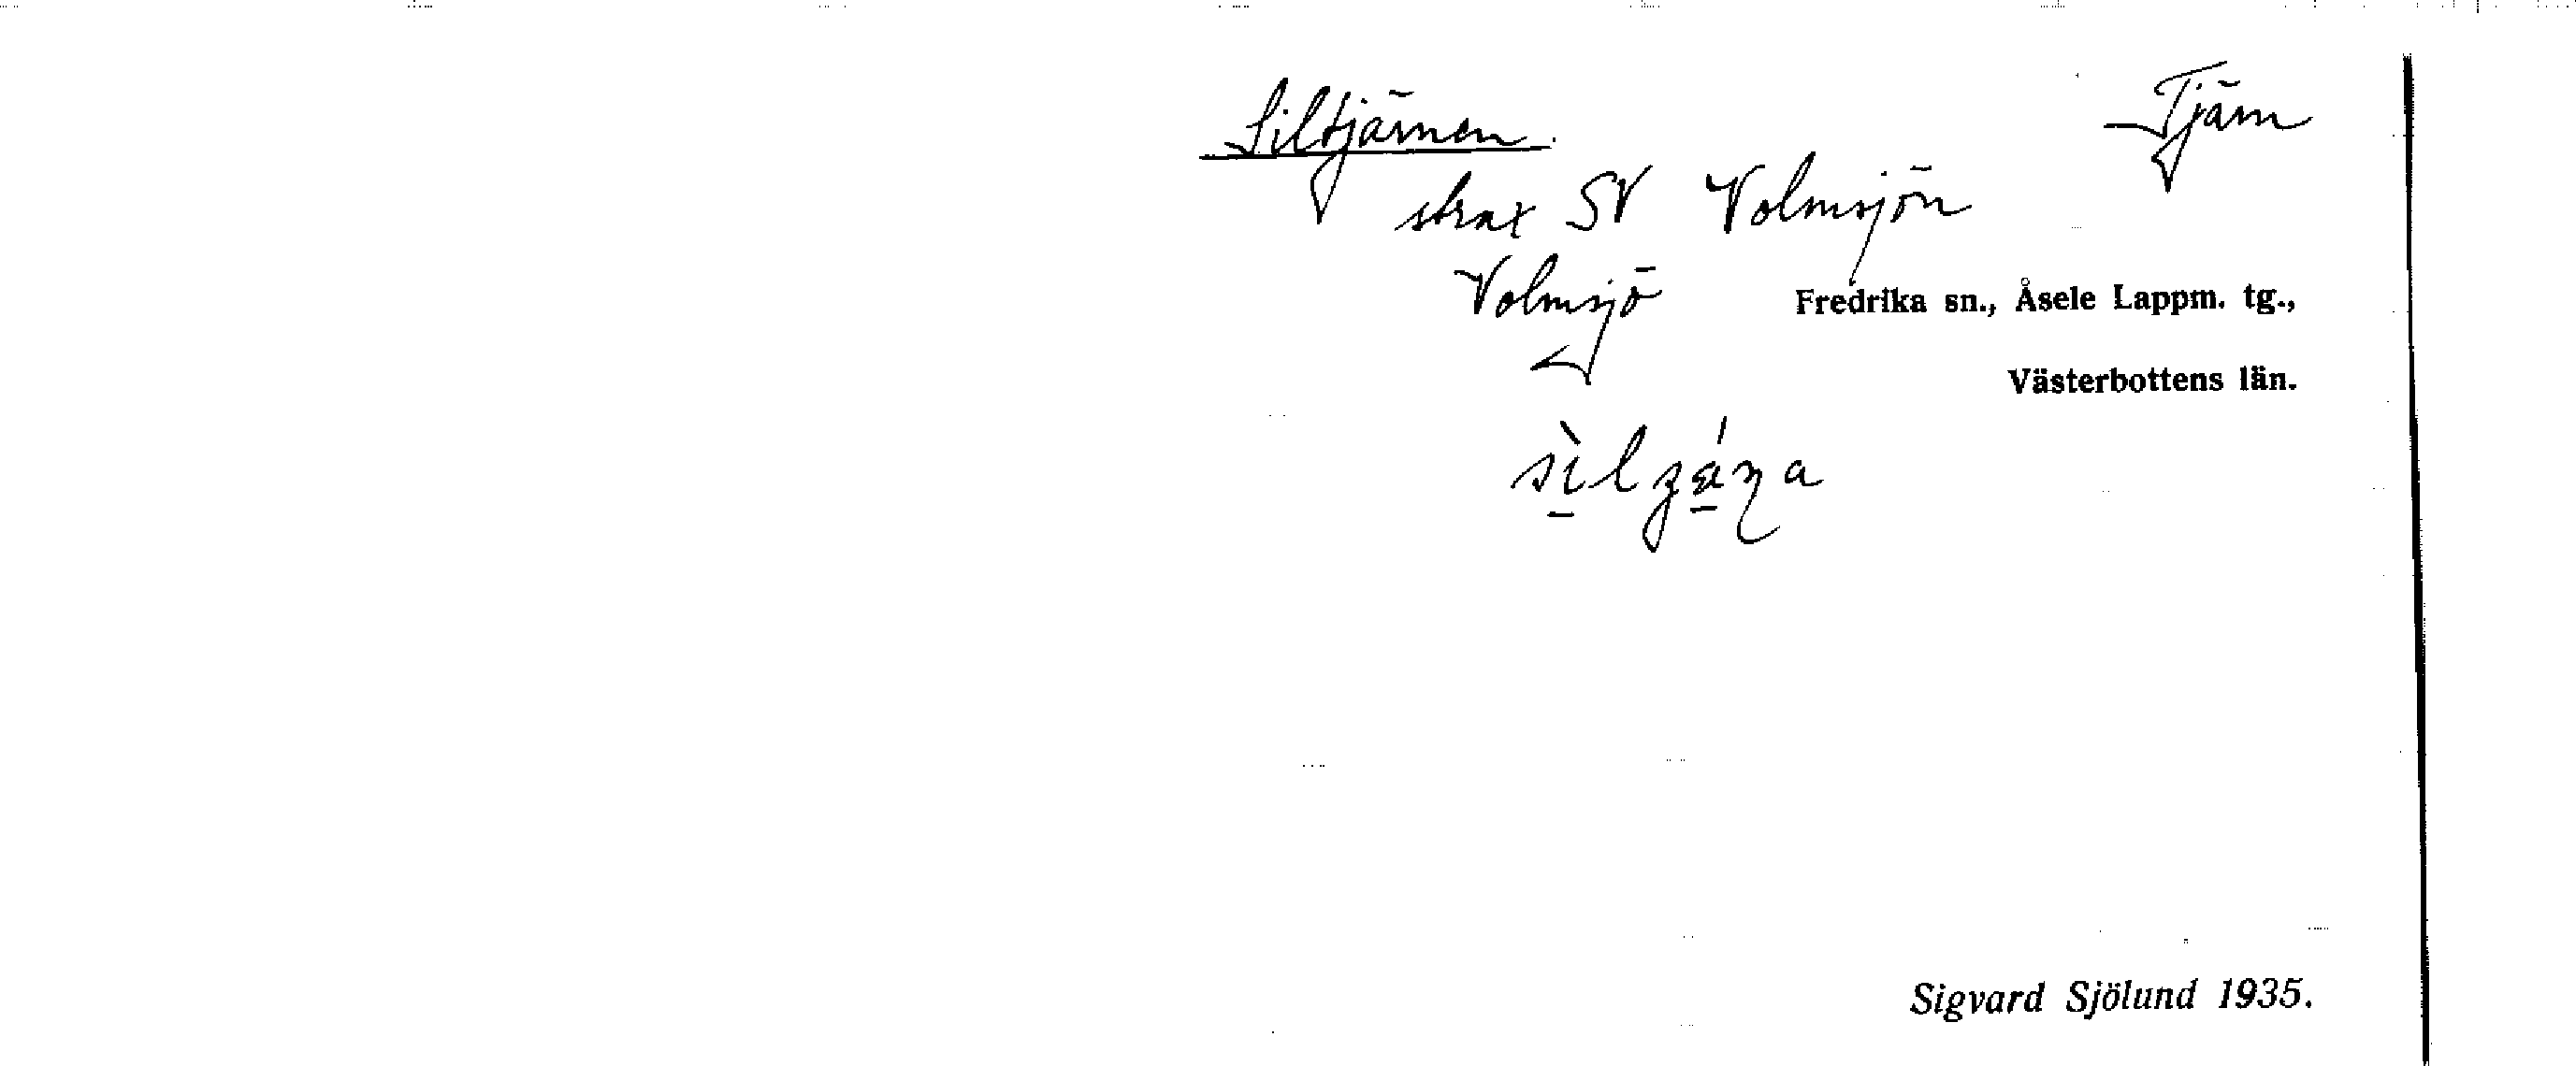 Siltjärnen. Tjärn
strax SV Volmsjön
Volmsjö Fredrika sn., Åsele Lappm. tg.,
Västerbottens län.
Sigvard Sjölund 1935.